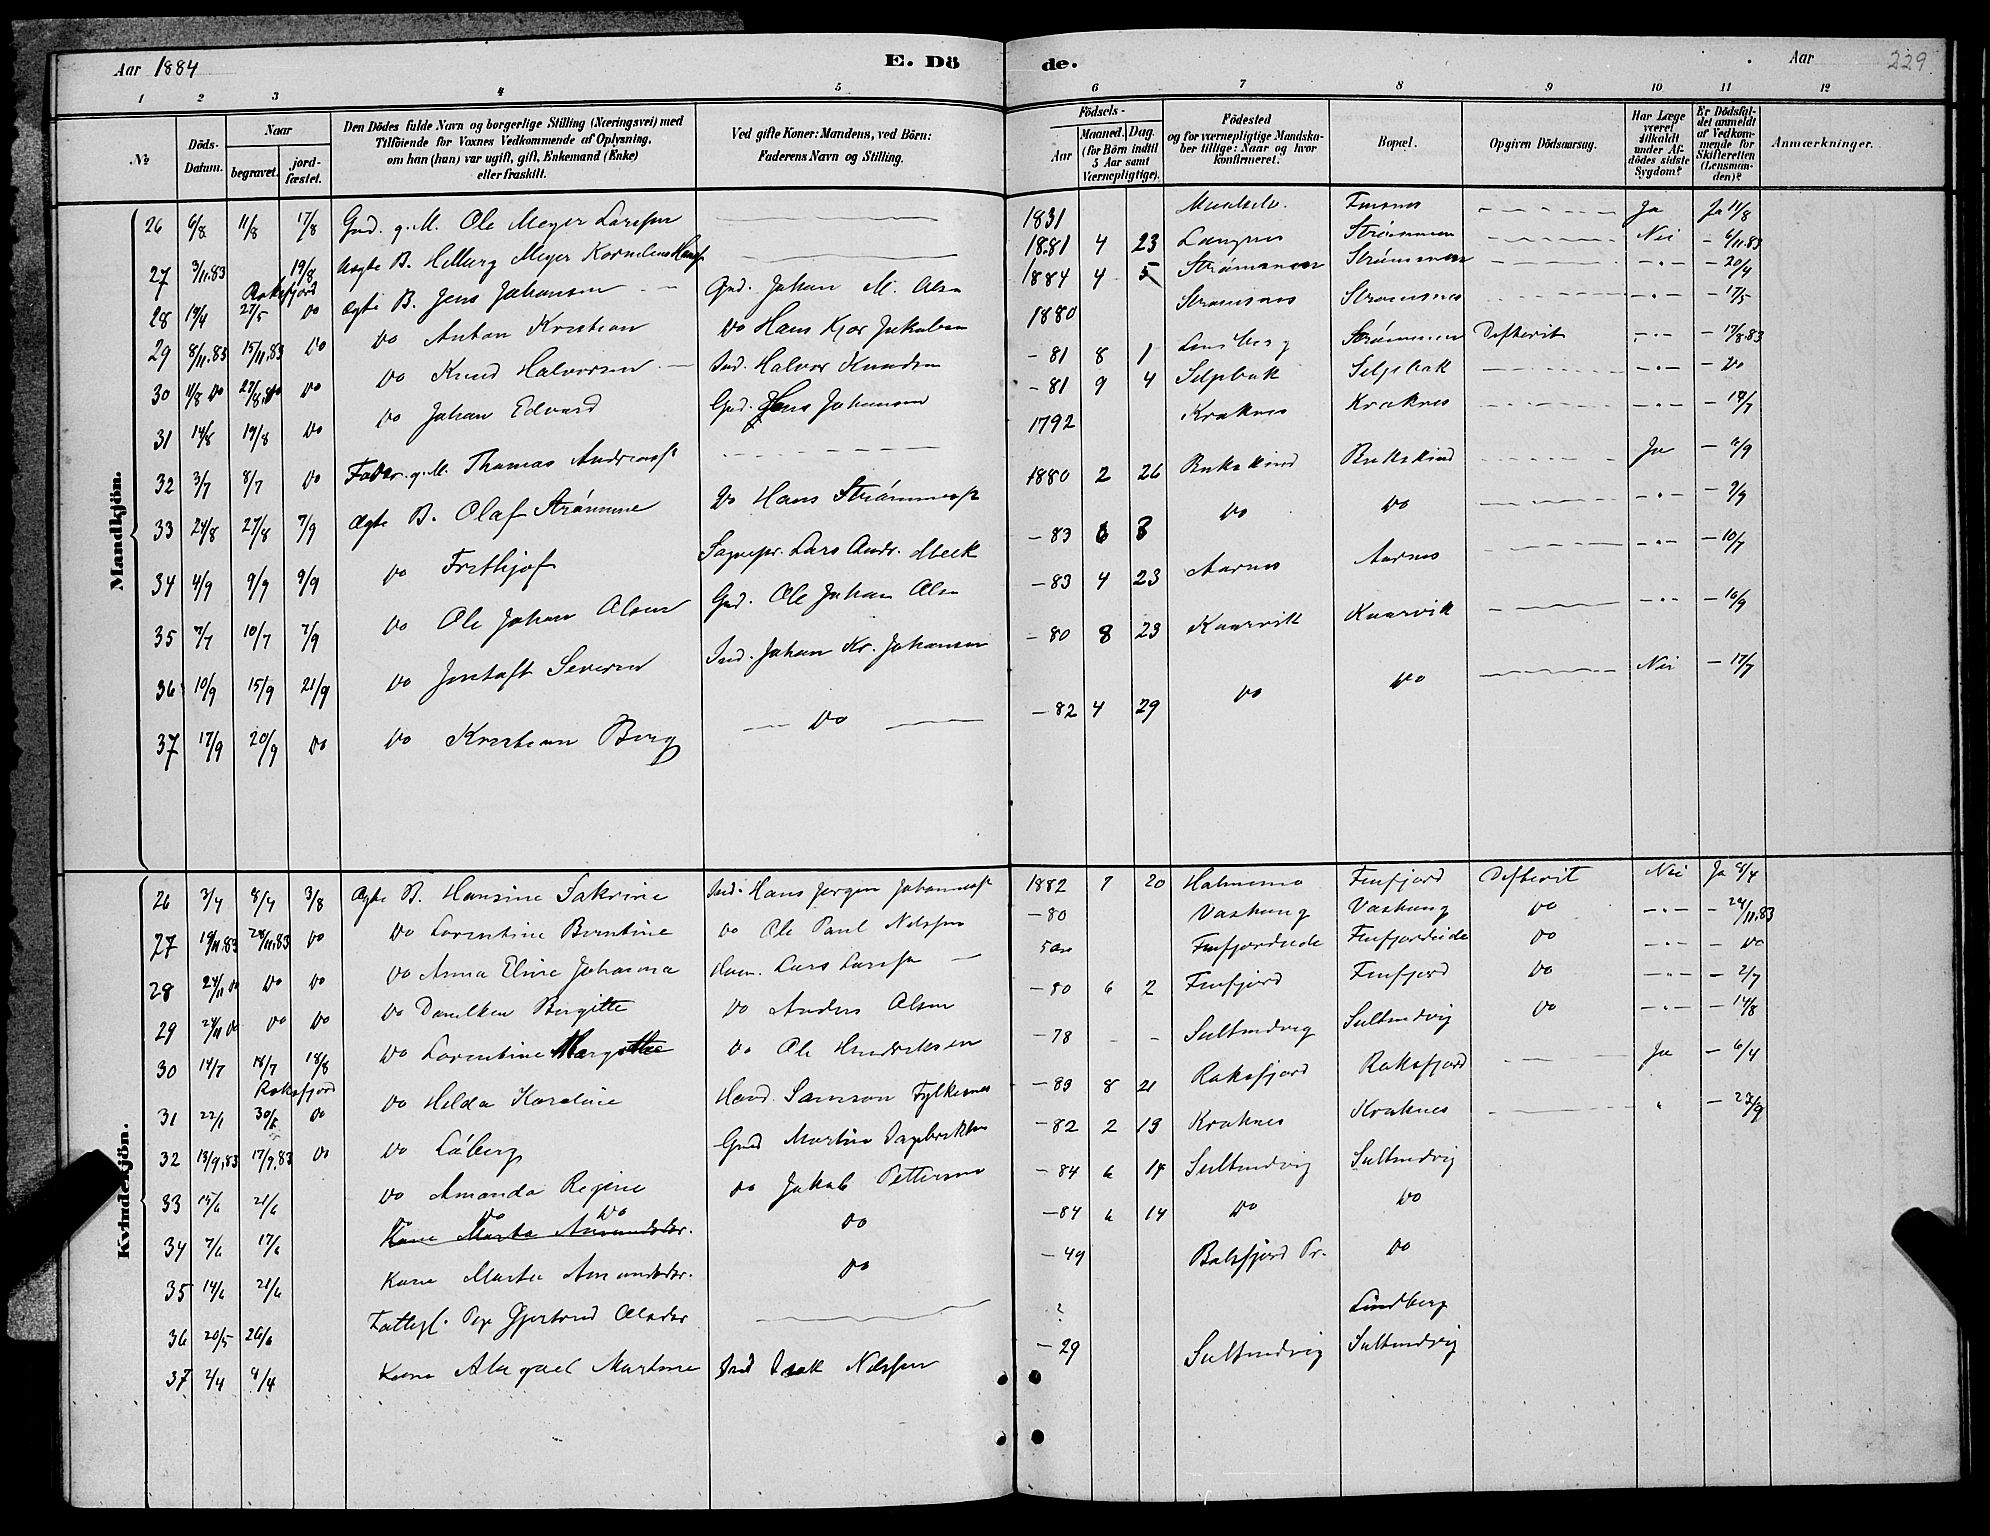 Aar 1884 E. Dö de. Aar 229
1 2 3 4 5 6 7 8 9 10 11 12
No Döds-Datum. Naar begravet. jordfæstet. Den Dödes fulde Navn og borgerlige Stilling (Næringsvei) med Tilföiende for Voxnes Vedkommende af Oplysning, om han (hun) var ugift, gift, Enkemand (Enke) eller fraskilt. Ved gifte Koner: Mandens, ved Börn: Faderens Navn og Stilling. Födsels- Aar Maaned. Dag. (for Börn indtil 5 Aar samt Værnepligtige). Födested og for værnepligtige Mandskaber tillige: Naar og hvor konfirmeret. Bopæl. Opgiven Dödsaarsag. Har Læge været tilkaldt under Afdödes sidste Sygdom? Er Dödsfaldet anmeldt af Vedkommende for Skifteretten (Lensmanden)? Anmærkninger.
Mandkjön.
26 6/8 11/8 17/8 Gmd. g. M. Ole Meyer Larssen 1831 Finsnes Ja Ja 11/8
27 3/11.83 19/8 Rakfjord Ægte B. Helberg Meyer 1881 4 23 Langnes Strømmen Nei - 6/11.83
28 19/4 27/5 do Ægte B. Jens Johansen Gmd. Johan M. Olsen 1884 4 5 Strømsnes Strømsnes - " - - 20/4
29 8/11.83 15/11.83 do do Anton Kristian do Hans Kjær Jakobsen 1880 Strømsnes Strømsnes - " - - 17/5
30 4/8 do 27/8.do do do Knud Halvorsen Ind. Halvor Knudsen - 81 8 1 Strømmen Defterit - " - - 17/8.83
31 14/8 19/8 do do Johan Edvard Gmd. Jens Johansen - 81 9 4 Selpbak Selpbak - " - - do
32 3/7 8/7 do g. M. Thomas Andreass. 1792 Kraknes Kraknes - " - - 18/7
33 24/8 27/8 7/9 Ægte B. Olaf Strømme do Hans Strømness 1880 2 26 Bukskind Bukskind Ja - 9/9
34 4/9 9/9 9/9 do Frithjof Lars Andr. Meek - 83 6 8 do do - " - - 9/9
35 7/7 10/7 7/9 do Ole Johan Olsen Gmd. Ole Johan Olsen - 83 4 23 Aarnes Aarnes - " - - 10/7
36 10/9 15/9 21/9 do Severin Ind. Johan Kr. Johansen - 80 8 23 Kaarvik Kaarvik - " - - 16/9
37 17/9 20/9 do do Kristian Berg do - 82 4 29 do do Nei - 17/7
Kvindekjön.
26 3/4 8/4 3/8 Ægte B. Hansine Sakrine Ind. Hans Jørgen Johanness. 1882 7 20 Halmsmo Finfjord Defterit Nei Ja 8/4
27 19/11.83 28/11.83 do do Lorentine Berntine do Ole Paul Nilssen - 80 Vashaug Vashaug do - " - - 24/11.83
28 24/11 do do do do Anna Eline Johanna Huusm. Lars Larssen 5 Aar Finfjordeide Finfjordeide do - " - - do
29 24/11 do do do do Birgitte do Anders Olsen - 80 6 2 Finfjord Finfjord do - " - - 2/7
30 14/7 18/7 18/8 do Lorentine Margrethe do Ole Hendriksen - 78 - - Sultindvig Sultindvig do - " - - 14/8
31 22/1 30/6 Rakfjord do do Helda Karoline Hand. Samson Fylkesnes - 83 8 21 Raksfjord Raksfjord Ja - 6/4
32 13/9.83 17/9.83 do do Gmd Martin Ingebriktsen - 82 2 19 Kraknes Kraknes " - 23/9
33 15/6 21/6 do Amanda Regine do Jakob Pettersen - 84 6 14 Sultindvig Sultindvig
34 7/6 17/6 do do Kone Marta Amundsdtr. do - 84 6 14 do do
35 14/6 21/6 Kone Marta Amundsdtr. do - 49 Balsfjord Pr. do
36 20/5 26/6 Fattigl. Pige Gjertrud Olsdtr ? Lindberg
37 2/4 9/4 Kone Abigael Martine Ind Isak Nilssen - 29 Sultindvig Sultindvig